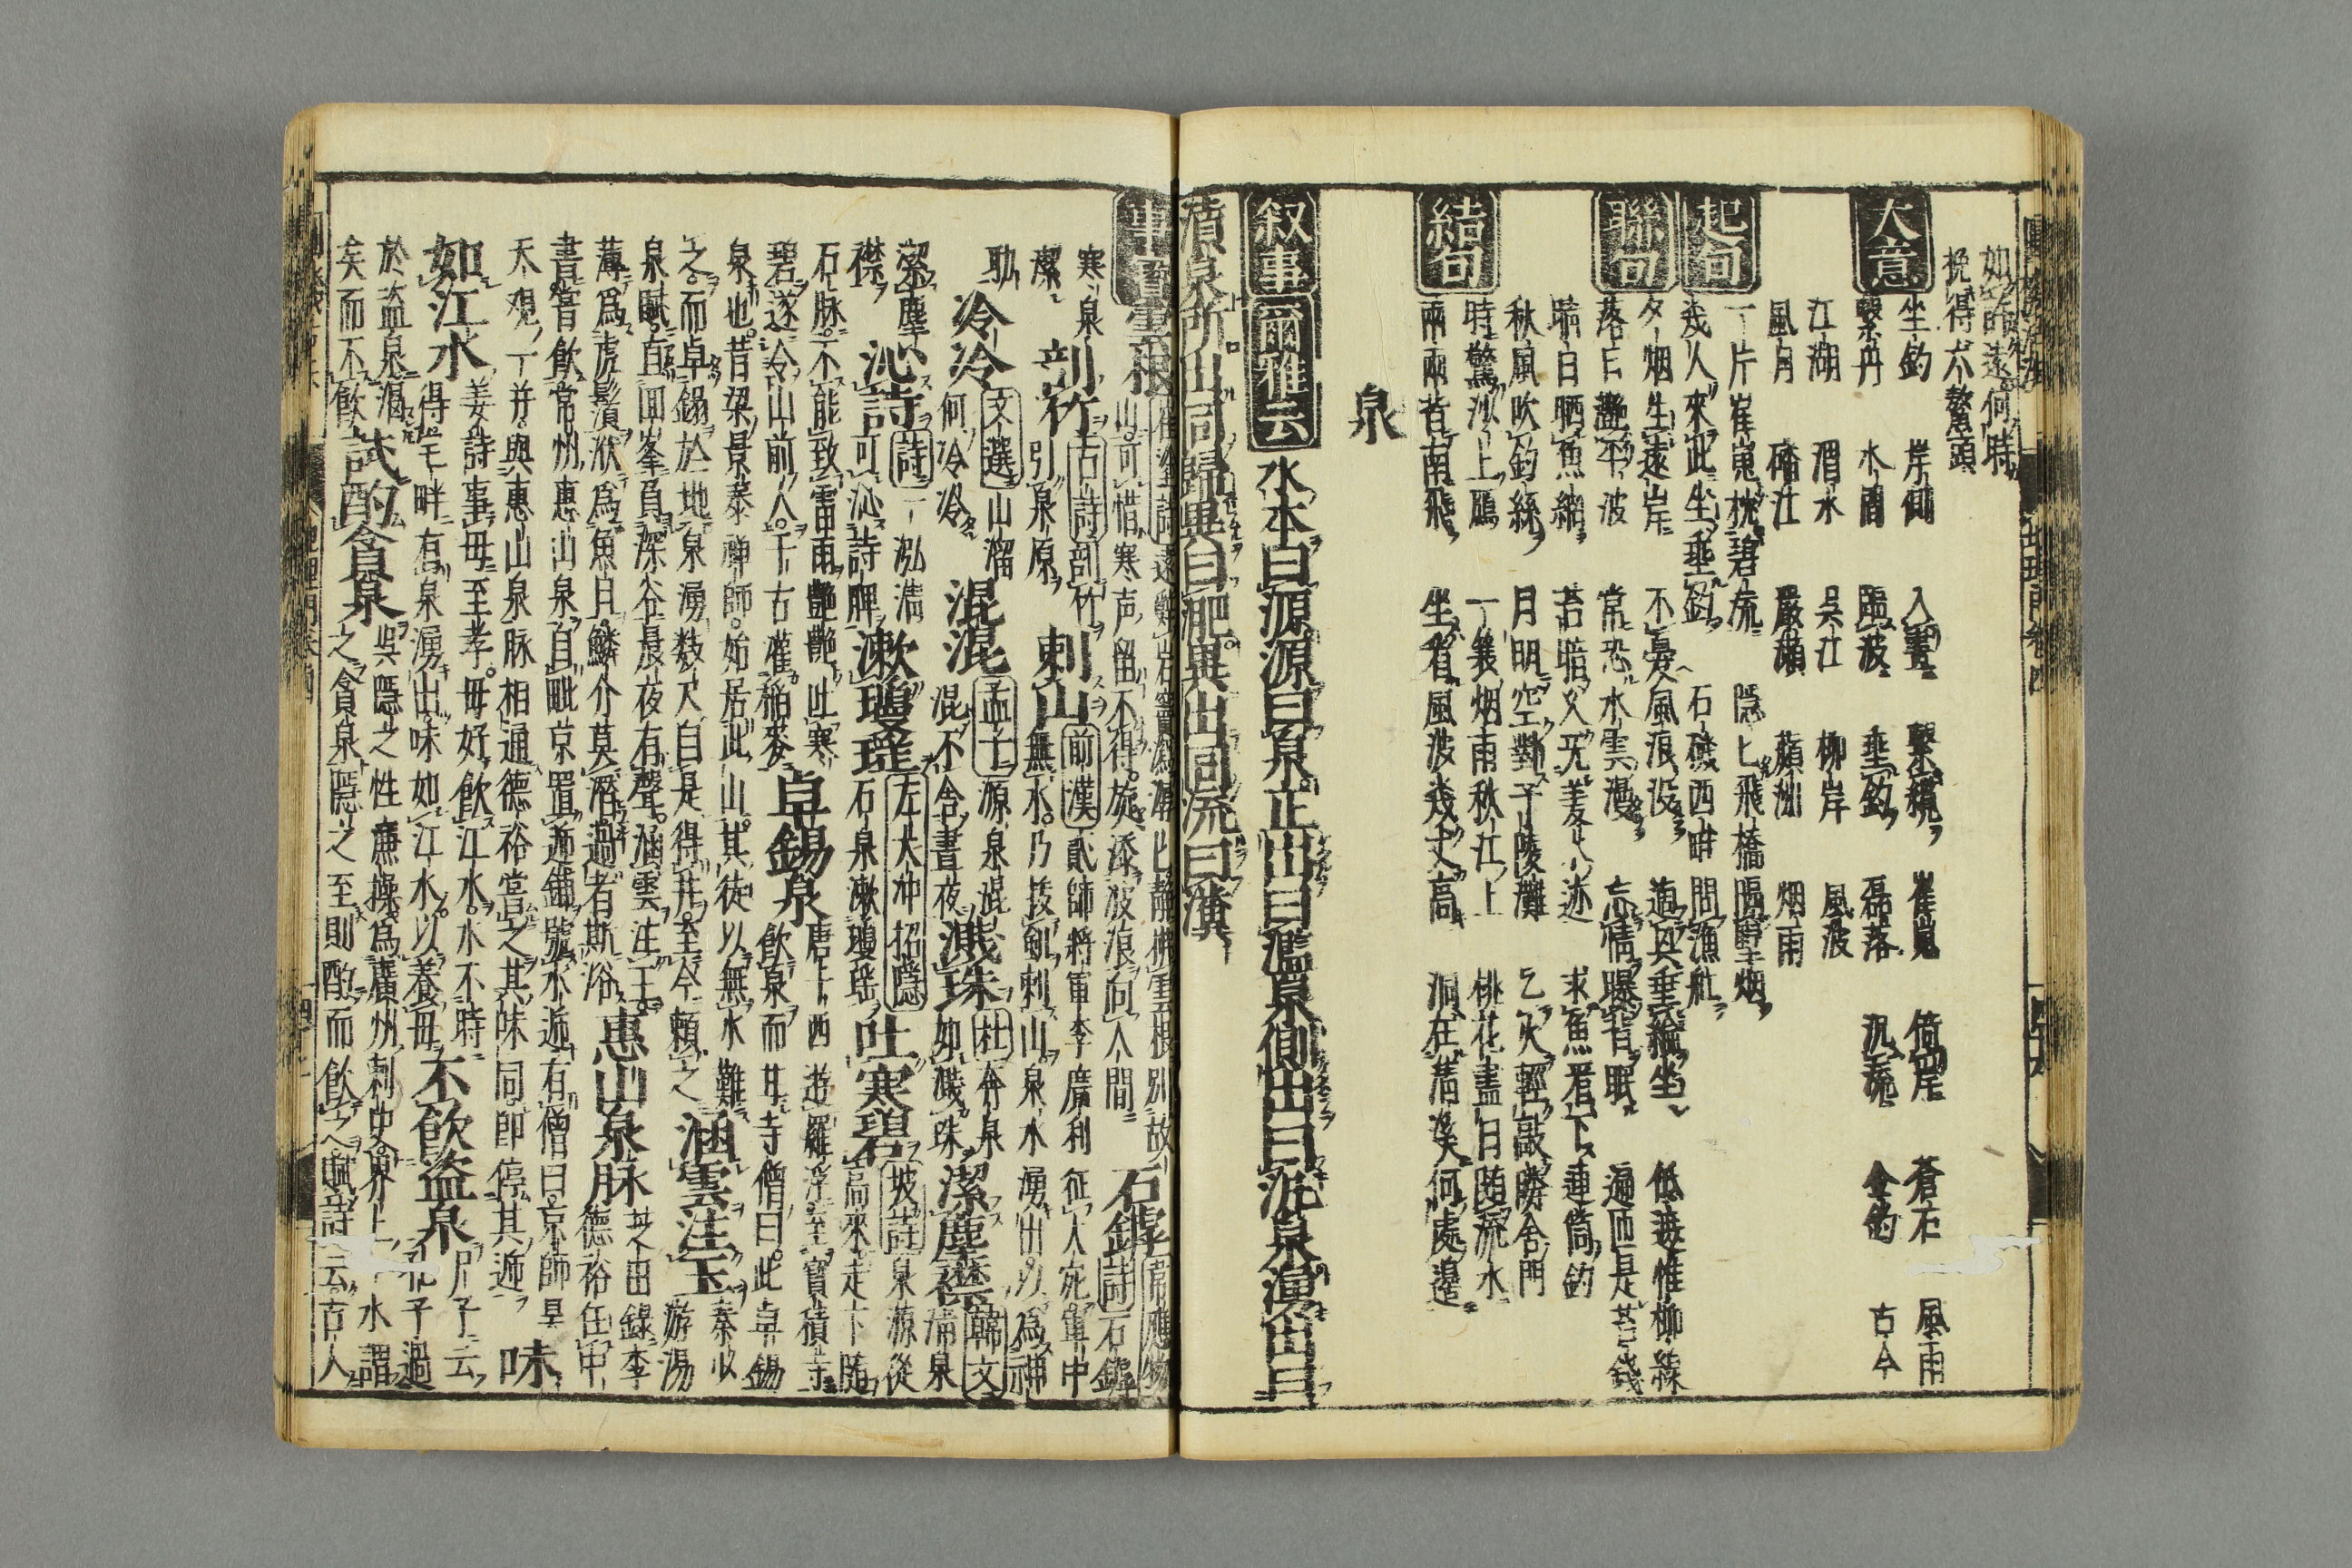 如昨遠何時
挽得六鰲頭
大意
坐釣 岸側 入畫 繫纜 崔嵬 倚岸 蒼石 風雨
繫舟 水面 臨波 垂釣 磊落 沉 金釣 古今
江湖 渭水 吳江 柳岸 風波
風月 磻江 嚴瀬 蘋洲 烟雨
起句
一片崔嵬枕碧流 隱隱飛橋隔野烟
幾人來此坐垂釣 石磯西畔問漁船
聯句
夕烟生遠岸 不憂風浪没 適興垂綸坐 低遊惟柳線
落日艷平波 常恐水雲漫 忘情曝背眠 遍匝是苔錢
晴白晒魚網 若 求魚看下連筒釣
秋風吹釣絲 月明空對子陵灘 乞火輕敲隣舍門
結句
時驚沙上鴈 一簑烟雨秋江上 桃花盡日隨流水
兩兩背南飛 坐看風波幾丈高 洞在清溪何處邊
泉
叙事 爾雅云 水本曰源源曰泉正出曰濫泉側出曰氿泉濆出曰
濆泉所出同歸異曰淝異出同流曰瀵
事實 雲根 石鏬
寒泉 山可惜寒声留不得旋添波浪向人間
剖竹 古詩剖竹引泉原 刺山 前漢貳師將軍李廣利征大宛軍中
無水乃拔劔刺山泉水湧出以為神
泠泠 文選山溜何泠泠 混混 孟子源泉混混不舍晝夜 濺珠 杜奔泉如濺珠 潔塵襟 韓文清泉
潔塵襟 沁詩 詩一泓清可沁詩脾 漱瓊瑶 左太冲招隱石泉漱瓊瑶 吐寒碧 坡詩泉源從高來走下隨
石脉不能致雷雨艷艷吐寒
碧遂令山前人千古灌稻麥 卓錫泉 唐子西遊羅浮至寶積寺飲泉而甘寺僧曰此卓錫
泉也昔梁景泰禪師始居此山其徒以無水難
之而卓錫於地泉湧数尺自是得井至今頼之 涵雲注玉 秦少游湯
泉賦直回峯負深谷晨夜有聲涵雲注玉
薄為虎鬚伏為魚目鱗介莫潛過者斯浴 惠山泉脉 芝田錄李德裕任中
書嘗飲常州惠山泉自毗京置遞鋪號水遞有僧曰京師昊
天觀一井與惠山泉脉相通德裕當之其味同即停其遞 味
如江水 姜詩事母至孝母好飲江水水不時
得宅畔有泉湧出味如江水以養母 不飲盗泉 尸子云孔子過
於盗泉渇
矣而不飲 試酌貪泉 吳隱之性廉操為廣州刺史界上一水謂
之貪泉隱之至則酌而飲之賦詩云古人